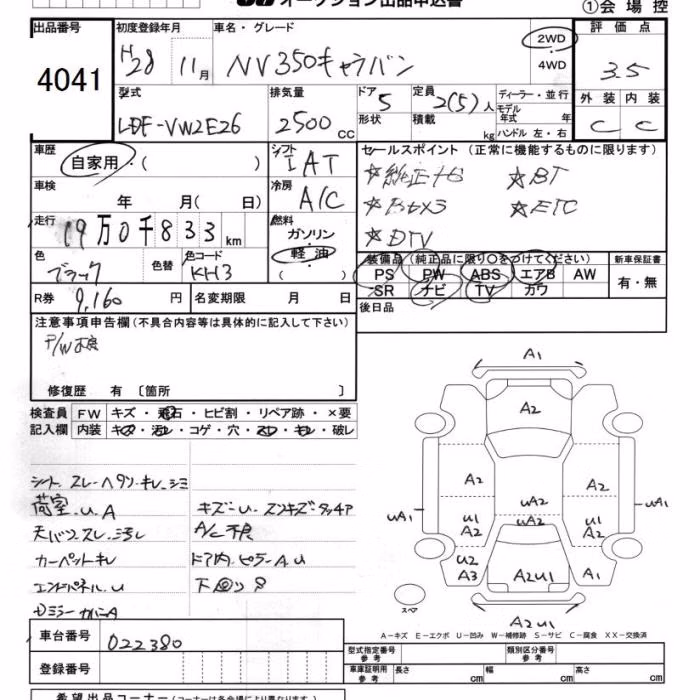 オークション出品申込書 ①会場控
出品番号 初度登録年月 車名・グレード 評価点
4041 H28 11月 NV350キャラバン 2WD 4WD 3.5
型式 排気量 ドア 定員 ディーラー・並行 外装 内装
LDF-VW2E26 2500cc 5 2(5)人 モデル年式 年 C C
形状 積載 kg ハンドル 左・右
車歴 シフト セールスポイント (正常に機能するものに限ります)
自家用・( ) IAT ☆純正ナビ ☆BT
車検 冷房 ☆Bカメラ ☆ETC
年 月( 日) A/C ☆DTV
走行 燃料
19万0千833km ガソリン・軽油 ( )
色 色替 色コード 装備品 (純正品に限り○をつけてください) 新車保証書
ブラック KH3 PS PW ABS エアB AW 有・無
SR ナビ TV カワ
R券 9,160円 名変期限 月 日 後日品
注意事項申告欄(不具合内容等は具体的に記入して下さい)
P/W不良
修復歴 有 〔箇所 〕
検査員 FW キズ・飛石・ヒビ割・リペア跡・×要
記入欄 内装 キズ・汚レ・コゲ・穴・スレ・キレ・破レ
シート スレ・ヘタリ・キレ・シミ
荷室・U.A キズ・U・スリキズ・タッチア
天バリ スレ・汚レ A/C不良
カーペットキレ ドア内・ピラーA.U
エンドパネル.U 下回りS
ミラーカバーA
A1
A2
A2 A2
UA2
UA1 U1 A2 UA2 U1 A2 UA1
U2 A3 A2U1 A1
スペア
A2U1
A－キズ E－エクボ U－凹み W－補修跡 S－サビ C－腐食 XX－交換済
車台番号 022380 型式指定番号 参考 類別区分番号 参考
登録番号 車庫証明用 参考 長さ cm 幅 cm 高さ cm
希望出品コーナー (コーナーは各会場により異なります)